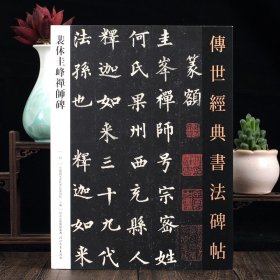 傳世經典書法碑帖
篆額
圭峯禪師号宗密姓
何氏果州西充縣人
釋迦如来三十九代
法孫也 釋迦如
裴休圭峰禪師碑